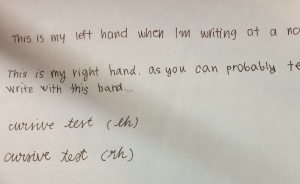 This is my left hand when I'm writing at a no
This is my right hand. as you can probably te
write with this hand...
cursive test (lh)
cursive test (rh)